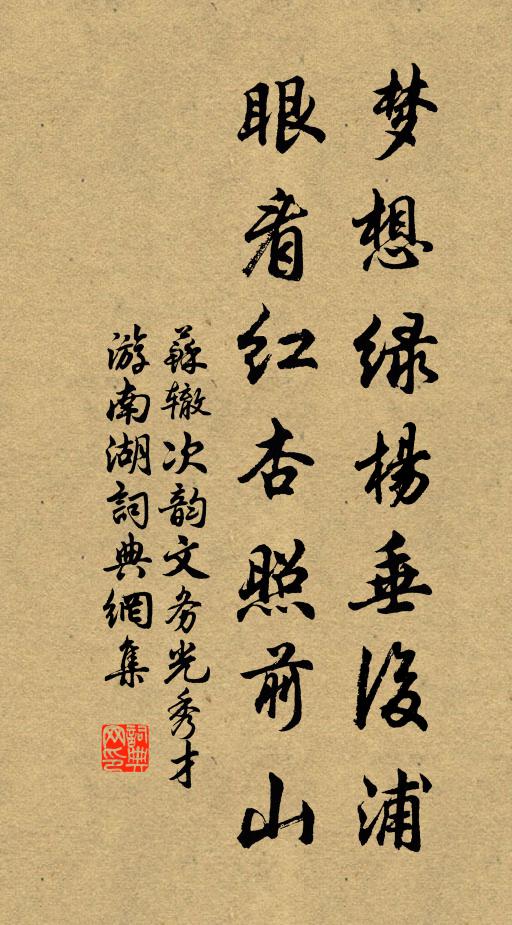 梦想绿杨垂後浦
眼看红杏照前山
蘇辙次韵文务光秀才
游南湖詞典網集
詞典
网印